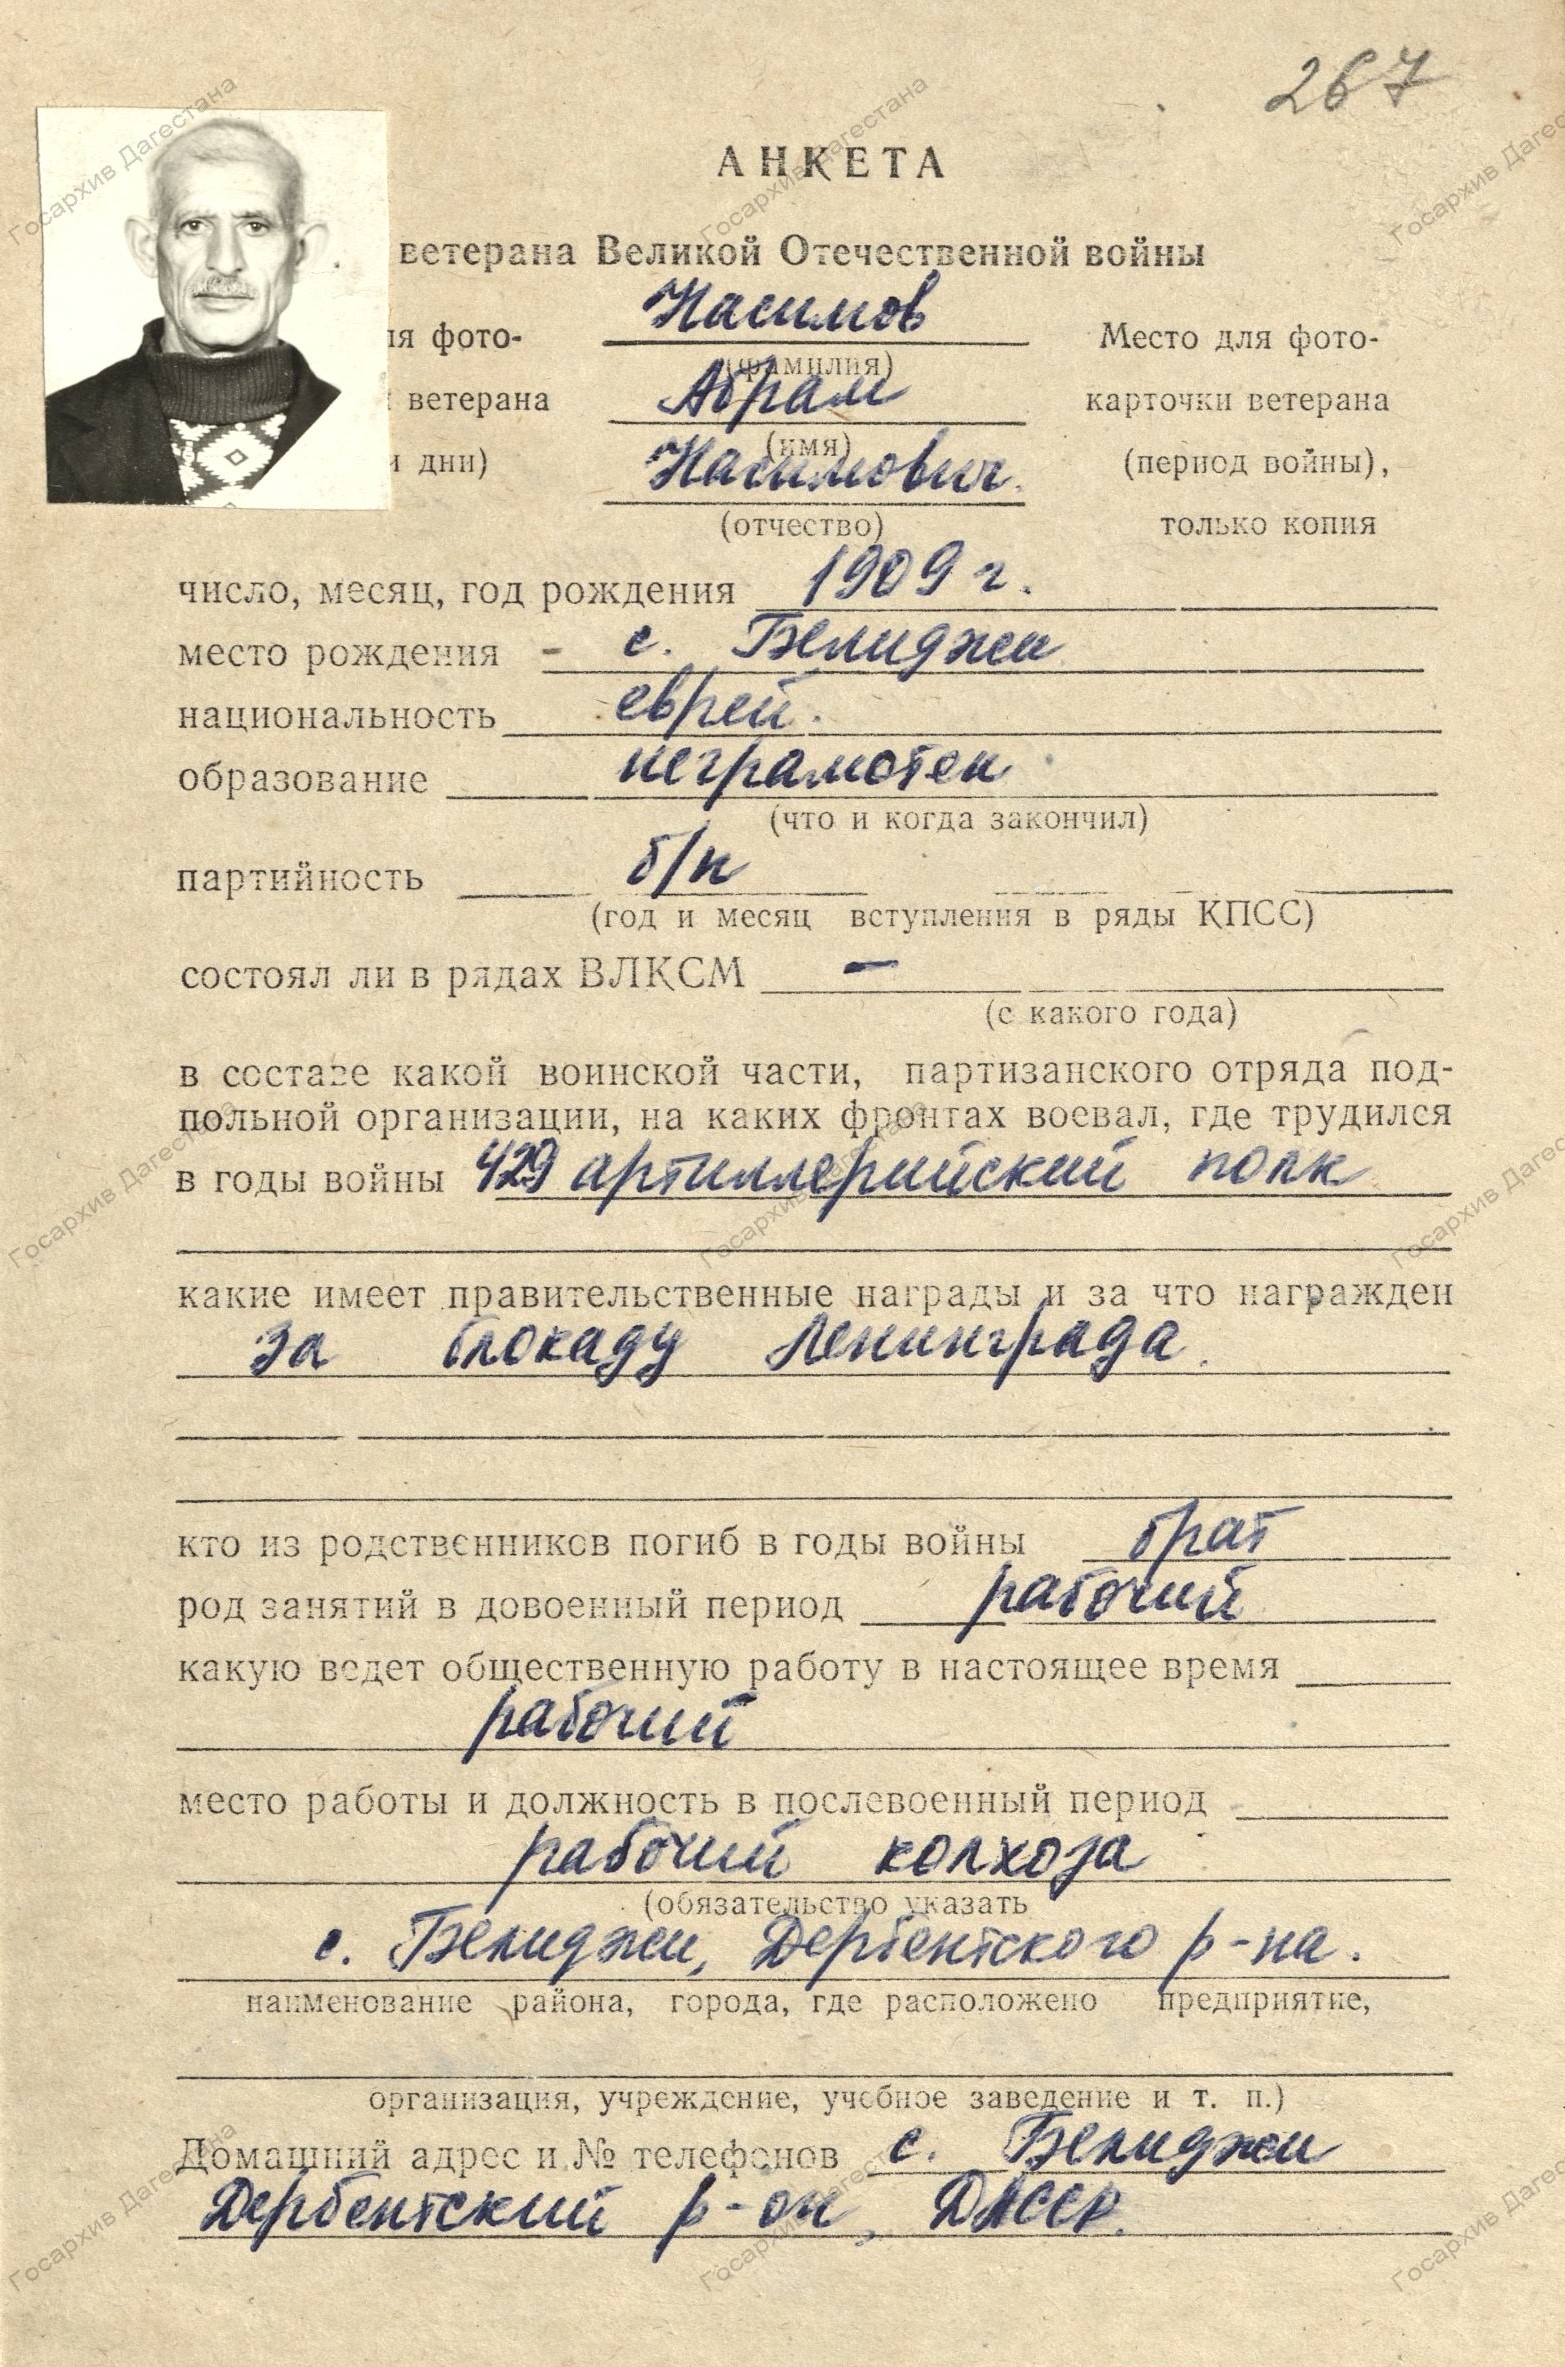 267
АНКЕТА
ветерана Великой Отечественной войны
Насимов
ия фото-
Место для фото-
(фамилия)
Абрам
ветерана
карточки ветерана
(имя)
и дни)
Насимович.
(период войны),
(отчество)
только копия
число, месяц, год рождения 1909 г.
место рождения - с. Белиджи
национальность еврей.
образование неграмотен
(что и когда закончил)
партийность б/п
(год и месяц вступления в ряды КПСС)
состоял ли в рядах ВЛКСМ —
(с какого года)
в составе какой воинской части, партизанского отряда под-
польной организации, на каких фронтах воевал, где трудился
в годы войны 429 артиллерийский полк
какие имеет правительственные награды и за что награжден
за блокаду Ленинграда.
кто из родственников погиб в годы войны брат
род занятий в довоенный период рабочий
какую ведет общественную работу в настоящее время
рабочий
место работы и должность в послевоенный период
рабочий колхоза
(обязательство указать
с. Белиджи, Дербентского р-на.
наименование района, города, где расположено предприятие,
организация, учреждение, учебное заведение и т. п.)
Домашний адрес и № телефонов с. Белиджи
Дербентский р-он, ДАССР.
Госархив Дагестана